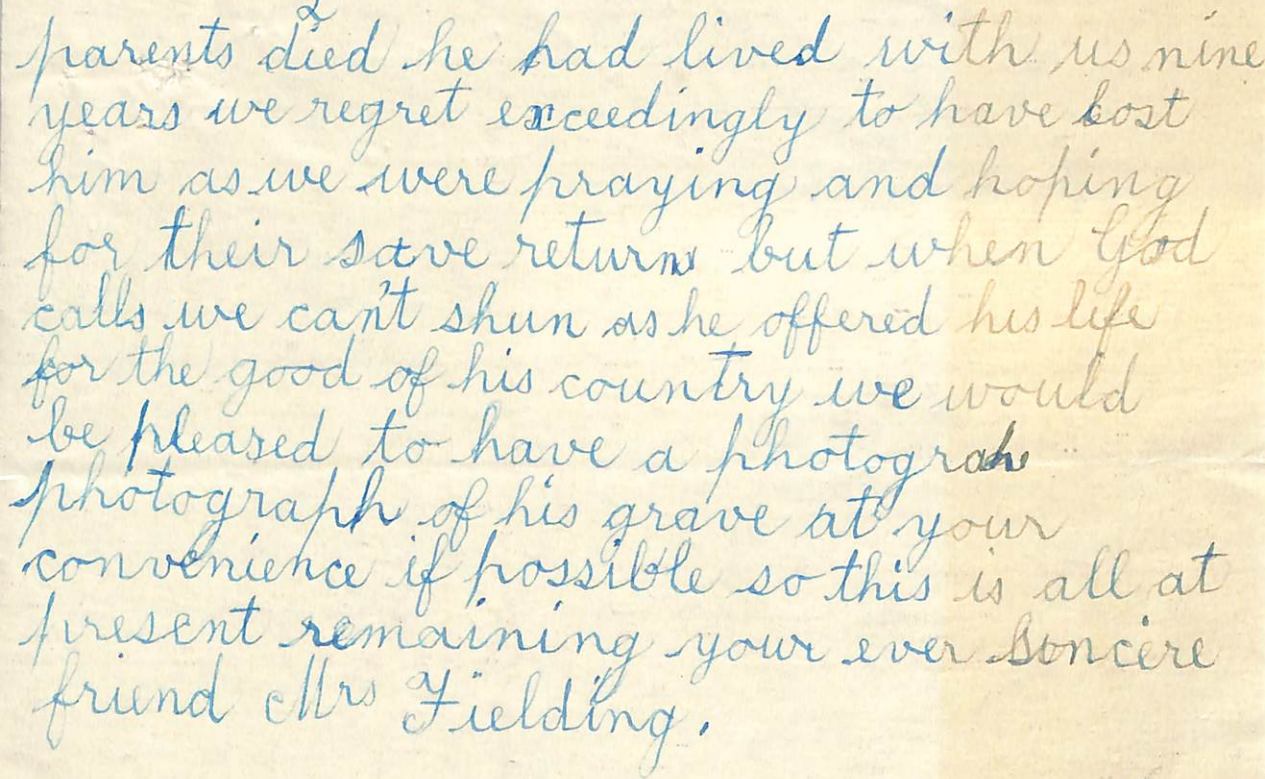 parents died he had lived with us nine
years we regret exceedingly to have lost
him as we were praying and hoping
for their save return but when God
calls we can't shun as he offered his life
for the good of his country we would
be pleased to have a photograh
photograph of his grave at your
convenience if possible so this is all at
present remaining your ever soncere
friend Mrs Fielding.